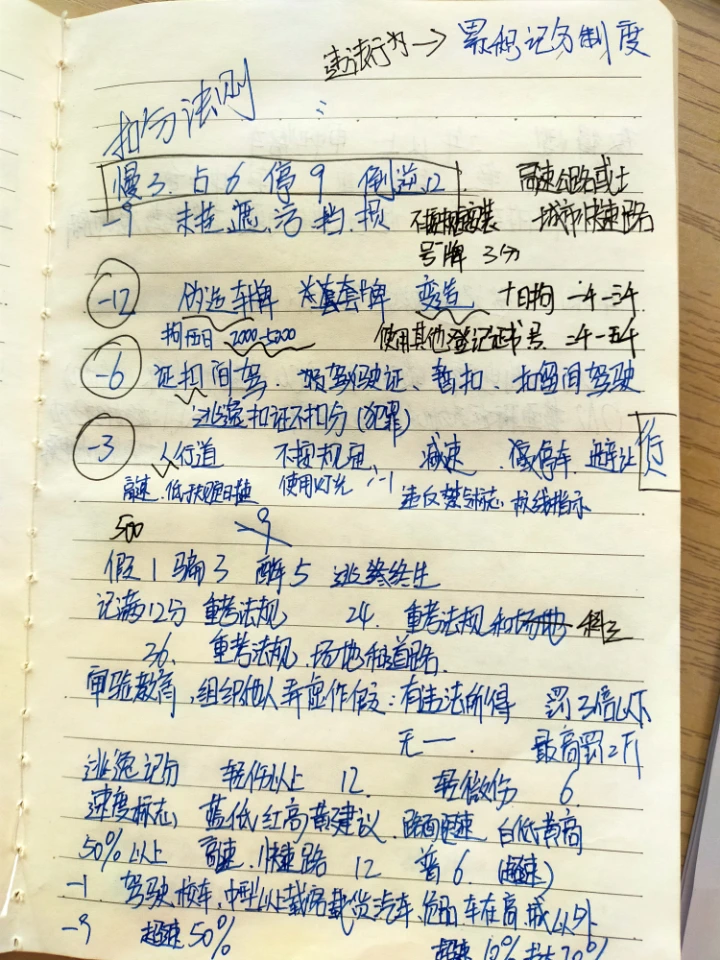 违法行为→ 累积记分制度
扣分法则
慢3 占6 停9 倒逆12 高速公路或
-9 未挂遮污挡损 不按规定安装 城市快速路
号牌 3分
-12 伪造车牌 套牌 变造 十日拘
拘十五日 2000-5000 使用其他登记证书号
-6 证扣间驾 驾驶证 暂扣 扣留间驾驶
逃逸扣证不扣分(犯罪)
-3 人行道 不按规定 减速 停车 避让 行
高速 低于规定时速 使用灯光:-1 违反禁令标志 标线指示
500
假1 骗3 醉5 逃终终生
记满12分 重考法规 24. 重考法规和 科三
36. 重考法规、场地和道路.
审验教育,组织他人弄虚作假:有违法所得 罚3倍以下
无一. 最高罚2万
逃逸记分 轻伤以上 12. 轻微伤 6
速度标志 蓝低红高黄建议. 路面 速 白低黄高
50%以上 高速、快速路 12 普6 (超速)
-1 驾驶校车、中型以上载客载货汽车、危 车在高、城以外
-9 超速50% 超速10% 20%